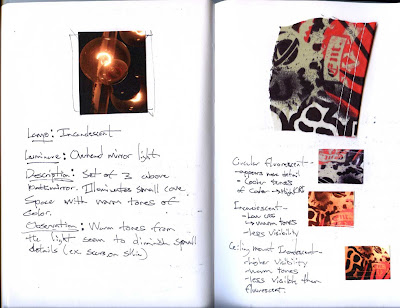 Lamp: Incandescent
Luminaire: Overhead mirror light
Description: Set of 3 above
bathmirror. Illuminates small cove
space with warm tones of
color.
Observation: Warm tones from
the light seem to diminish small
details (ex. scars on skin)
Circular fluorescent-
-appears more detail
- Cooler tones
of color
Incandescent-
- Low
warm tones
-less visibility
Ceiling mount Incandescent-
-higher visibility
-warm tones
-less visible than
fluorescent.